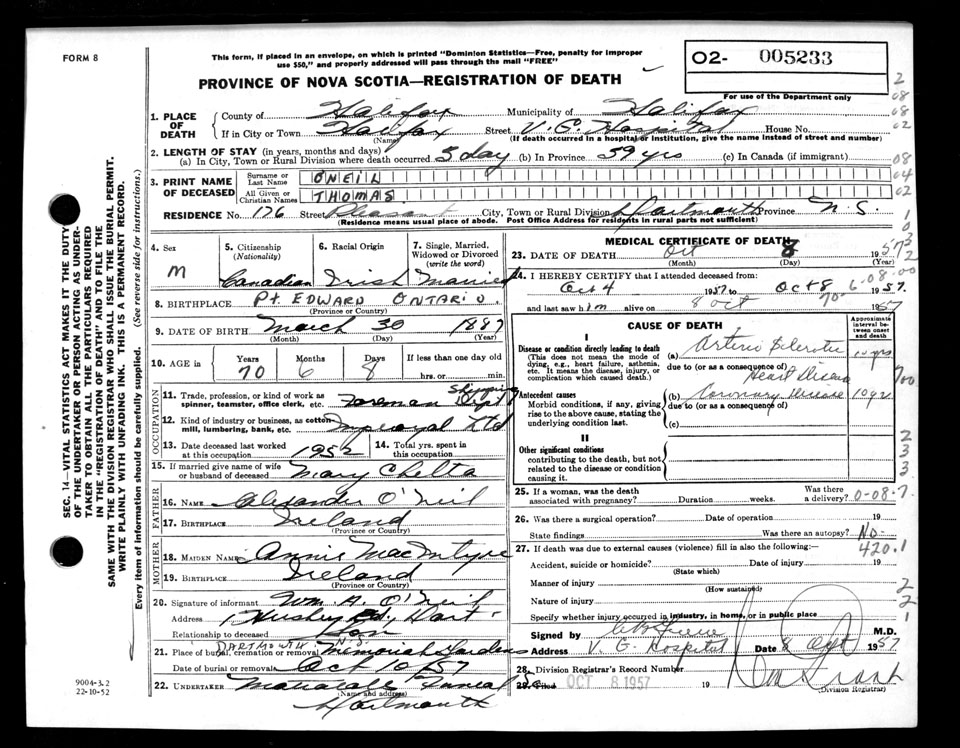 FORM 8
This form, if placed in an envelope, on which is printed "Dominion Statistics—Free, penalty for improper
use $50," and properly addressed will pass through the mail "FREE"
PROVINCE OF NOVA SCOTIA—REGISTRATION OF DEATH
02- 005233
For use of the Department only
2
08
08
02
08
04
02
1
0
SEC. 14—VITAL STATISTICS ACT MAKES IT THE DUTY
OF THE UNDERTAKER OR PERSON ACTING AS UNDER-
TAKER TO OBTAIN ALL THE PARTICULARS REQUIRED
IN THE "REGISTRATION OF DEATH" AND TO FILE THE
SAME WITH THE DIVISION REGISTRAR WHO SHALL ISSUE THE BURIAL PERMIT.
WRITE PLAINLY WITH UNFADING INK. THIS IS A PERMANENT RECORD.
Every item of information should be carefully supplied. (See reverse side for instructions.)
1. PLACE OF DEATH
County of Halifax Municipality of Halifax
If in City or Town Halifax Street V. G. Hospital House No.
(Name) (If death occurred in a hospital or institution, give the name instead of street and number)
2. LENGTH OF STAY (in years, months and days)
(a) In City, Town or Rural Division where death occurred 5 day (b) In Province 59 yrs (c) In Canada (if immigrant)
3. PRINT NAME OF DECEASED
Surname or Last Name ONEIL
All Given or Christian Names THOMAS
RESIDENCE No. 176 Street Pleasant City, Town or Rural Division Dartmouth Province N.S.
(Residence means usual place of abode. Post Office Address for residents in rural parts not sufficient)
4. Sex M
5. Citizenship (Nationality) Canadian
6. Racial Origin Irish
7. Single, Married, Widowed or Divorced (write the word) Married
8. BIRTHPLACE Pt. EDWARD ONTARIO
(Province or Country)
9. DATE OF BIRTH March 30 1887
(Month) (Day) (Year)
10. AGE in Years 70 Months 6 Days 8 If less than one day old hrs. or min.
OCCUPATION
11. Trade, profession, or kind of work as spinner, teamster, office clerk, etc. Foreman Shipping Dept
12. Kind of industry or business, as cotton mill, lumbering, bank, etc. Imperoyal Ltd
13. Date deceased last worked at this occupation 1952
14. Total yrs. spent in this occupation
15. If married give name of wife or husband of deceased Mary
FATHER
16. NAME Alexander O'Neil
17. BIRTHPLACE Ireland
(Province or Country)
MOTHER
18. MAIDEN NAME Annie MacIntyre
19. BIRTHPLACE Ireland
(Province or Country)
20. Signature of informant Wm. A. O'Neil
Address Rd., Dart.
Relationship to deceased Son
21. Place of burial, cremation or removal DARTMOUTH N.S. Memorial Gardens
Date of burial or removal Oct 10/57
22. UNDERTAKER Funeral
(Name and address)
Dartmouth
9004-3.2
22-10-52
MEDICAL CERTIFICATE OF DEATH
23. DATE OF DEATH Oct 8 1957
(Month) (Day) (Year)
24. I HEREBY CERTIFY that I attended deceased from:
Oct 4 1957 to Oct 8 1957
and last saw him alive on 8 Oct 1957
CAUSE OF DEATH
Approximate interval between onset and death
I
Disease or condition directly leading to death
(This does not mean the mode of dying, e.g., heart failure, asthenia, etc. It means the disease, injury, or complication which caused death.)
(a) Arterio Sclerotic 10 yrs
due to (or as a consequence of)
Heart Disease
Antecedent causes
Morbid conditions, if any, giving rise to the above cause, stating the underlying condition last.
(b) Coronary Disease 10 yr.
due to (or as a consequence of)
(c)
II
Other significant conditions
contributing to the death, but not related to the disease or condition causing it.
25. If a woman, was the death associated with pregnancy? Duration weeks. Was there a delivery? 0-08-7.
26. Was there a surgical operation? Date of operation 19
State findings Was there an autopsy? No.
420.1
27. If death was due to external causes (violence) fill in also the following:
Accident, suicide or homicide? Date of injury 19
(State which)
Manner of injury
(How sustained)
Nature of injury
Specify whether injury occurred in industry, in home, or in public place
Signed by M.D.
Address V. G. Hospital Date 8 Oct 1957
28. Division Registrar's Record Number
29. Filed OCT 8 1957 19
(Division Registrar)